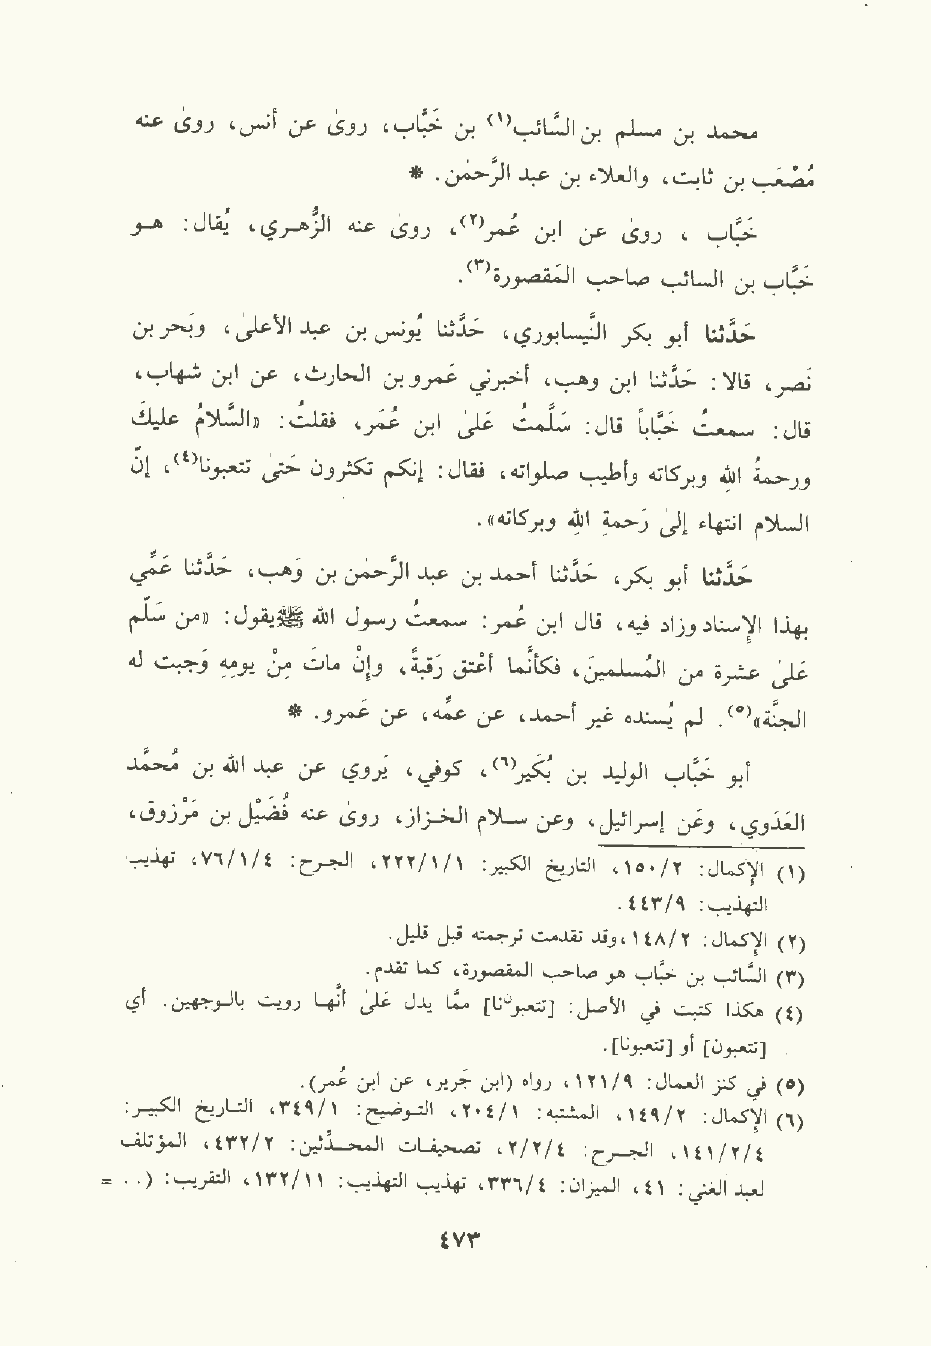 محمد بن مسلم بن السَّائب(١) بن خَبَّاب، روىٰ عن أنس، روىٰ عنه
مُصْعَب بن ثابت، والعلاء بن عبد الرَّحمٰن. *
خَبَّاب ، روىٰ عن ابن عُمر(٢)، وروىٰ عنه الزُّهـري، يُقالُ: هـو
خَبَّاب بن السائب صاحب المَقصورة(٣).
حَدَّثنا أبو بكر النَّيسابوري، حَدَّثنا يُونس بن عبد الأعلىٰ، وبَحر بن
نَصر، قالا: حَدَّثنا ابن وهب، أخبرني عَمرو بن الحارث، عن ابن شهاب،
قال: سمعتُ خَبَّاباً قال: سَلَّمتُ عَلىٰ ابن عُمَر، فقلتُ: «السَّلامُ عليكَ
ورحمةُ الله وبركاته وأطيب صلواته، فقال: إنكم تكثرون حَتىٰ تتعبونا(٤)، إنّ
السلام انتهاء إلىٰ رَحمةِ الله وبركاته».
حَدَّثنا أبو بكر، حَدَّثنا أحمد بن عبد الرَّحمٰن بن وَهب، حَدَّثنا عَمِّي
بهذا الإِسناد وزاد فيه، قال ابن عُمر: سمعتُ رسول الله ﷺ يقول: «من سَلَّم
عَلىٰ عشرة من المُسلمين، فكأنَّما أعتق رَقبةً، وإنْ ماتَ مِنْ يومِهِ وَجبت له
الجنَّة»(٥). لم يُسنده غير أحمد، عن عمِّه، عن عَمرو. *
أبو خَبَّاب الوليد بن بُكَير(٦)، كوفي، يَروي عن عبد الله بن مُحمَّد
العَدَوي، وعَن إسرائيل، وعن سـلام الخـزاز، روىٰ عنه فُضَيْل بن مَرْزوق،
(١) الإِكمال: ١٥٠/٢، التاريخ الكبير: ٢٢٢/١/١، الجـرح: ٧٦/١/٤، تهذيب
التهذيب: ٤٤٣/٩.
(٢) الإِكمال: ١٤٨/٢، وقد تقدمت ترجمته قبل قليل.
(٣) السَّائب بن خبَّاب هو صاحب المقصورة، كما تقدم.
(٤) هكذا كتبت في الأصل: [تتعبونا] ممَّا يدل علىٰ أنَّهـا رويت بالـوجهين. أي
[تتعبون] أو [تتعبونا].
(٥) في كنز العمال: ١٢١/٩، رواه (ابن جَرير، عن ابن عُمر).
(٦) الإِكمال: ١٤٩/٢، المشتبه: ٢٠٤/١، التـوضيح: ٣٤٩/١، التـاريخ الكبيـر:
١٤١/٢/٤، الجـرح: ٢/٢/٤، تصحيفـات المحـدِّثين: ٤٣٢/٢، المؤتلف
لعبد الغني: ٤١، الميزان: ٣٣٦/٤، تهذيب التهذيب: ١٣٢/١١، التقريب: (. . =
٤٧٣